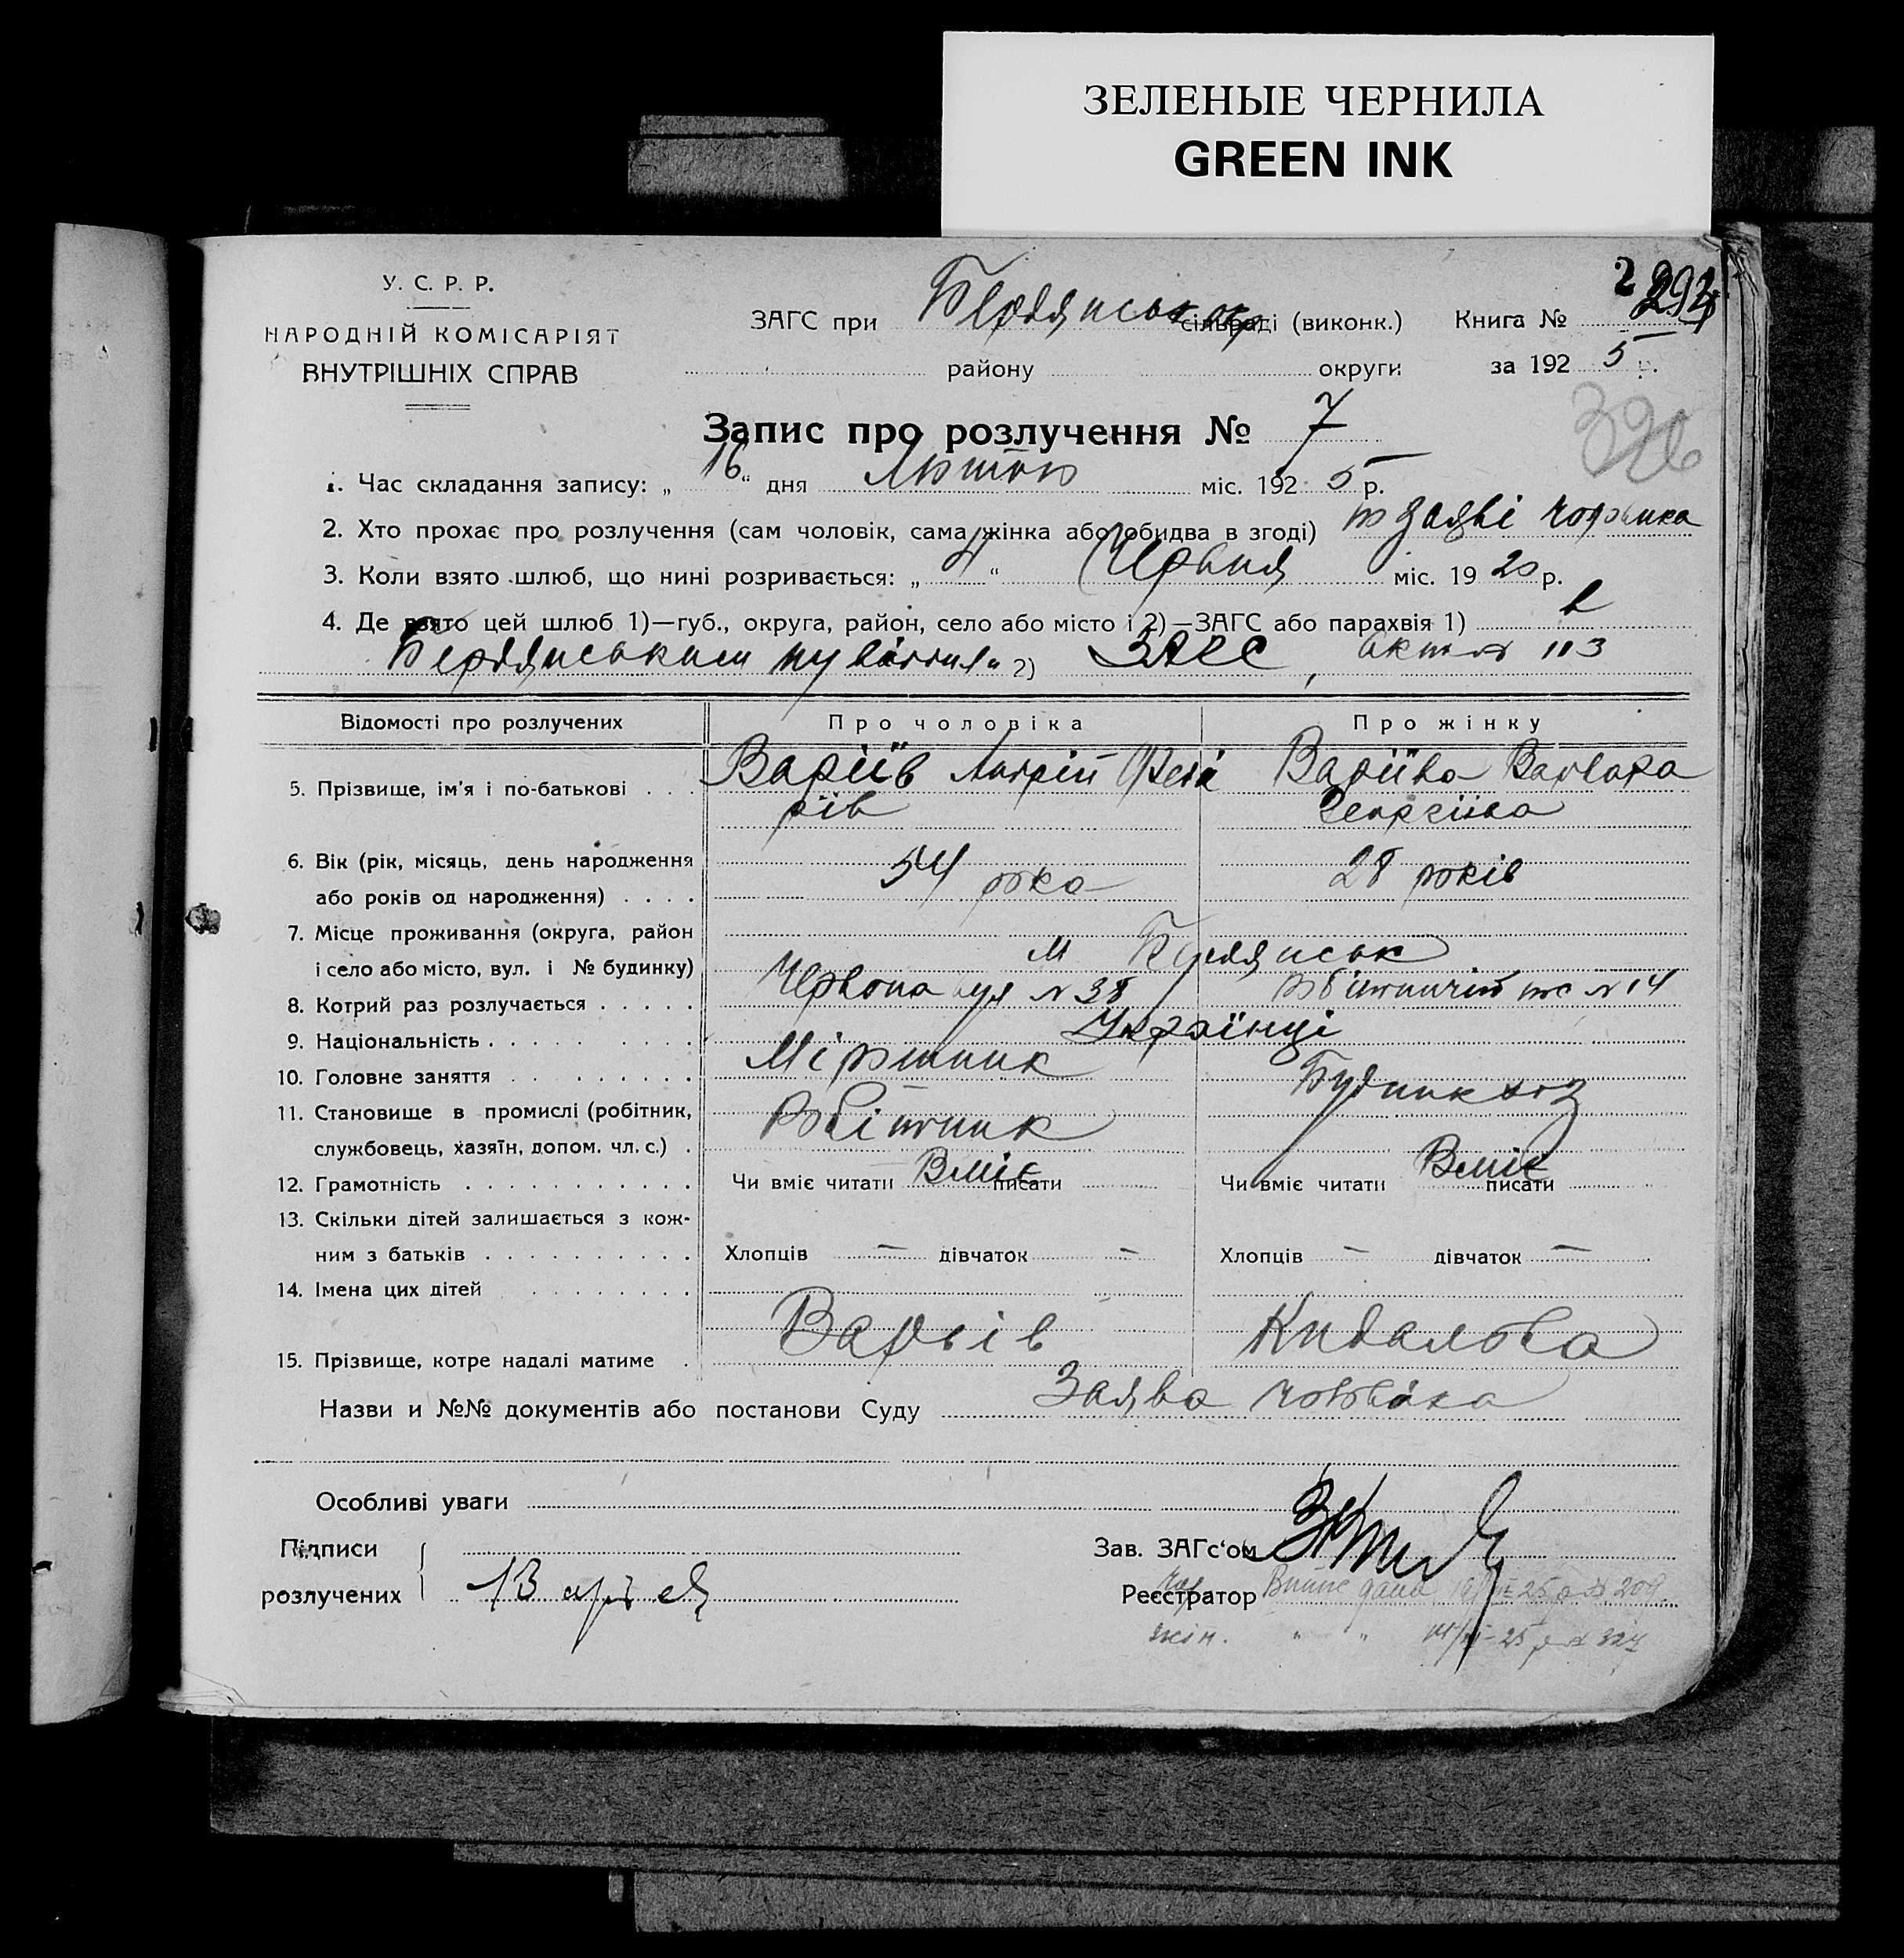 ЗЕЛЕНЫЕ ЧЕРНИЛА
GREEN INK
У. С. Р. Р.
НАРОДНІЙ КОМІСАРІЯТ
ВНУТРІШНІХ СПРАВ
ЗАГС при Бердянськ сільраді (виконк.) Книга № 2
району округи за 192 5 р.
326
Запис про розлучення № 7
1. Час складання запису: „ 16 “ дня Лютого міс. 192 5 р.
2. Хто прохає про розлучення (сам чоловік, сама жінка або обидва в згоді) по заяві чоловіка
3. Коли взято шлюб, що нині розривається: „ 4 “ Червня міс. 19 20 р.
4. Де взято цей шлюб 1)—губ., округа, район, село або місто і 2)—ЗАГС або парахвія 1) в
Бердянським 2) ЗАГС, акт № 113
Відомості про розлучених Про чоловіка Про жінку
5. Прізвище, ім'я і по-батькові . . . Варіїв Андрій Федо Варіїва Варвара
рів Георгіївна
6. Вік (рік, місяць, день народження
або років од народження) . . . . 54 рока 28 років
7. Місце проживання (округа, район м Бердянськ
і село або місто, вул. і № будинку) Червона вул № 38 Робітничій № 14
8. Котрий раз розлучається . . . . .
9. Національність . . . . . . . . Українці
10. Головне заняття . . . . . . . . Мірошник Будинк
11. Становище в промислі (робітник, Робітник
службовець, хазяїн, допом. чл. с.) .
12. Грамотність . . . . . . . . . . . Чи вміє читати Вміє писати Чи вміє читати Вміє писати
13. Скільки дітей залишається з кож-
ним з батьків . . . . . . . . . . Хлопців — дівчаток — Хлопців — дівчаток —
14. Імена цих дітей . . . . . . . .
15. Прізвище, котре надалі матиме . Варьів Кидалова
Назви и №№ документів або постанови Суду Заява чоловіка
Особливі уваги
Підписи Зав. ЗАГс‘ом
розлучених Реєстратор
жін. " "